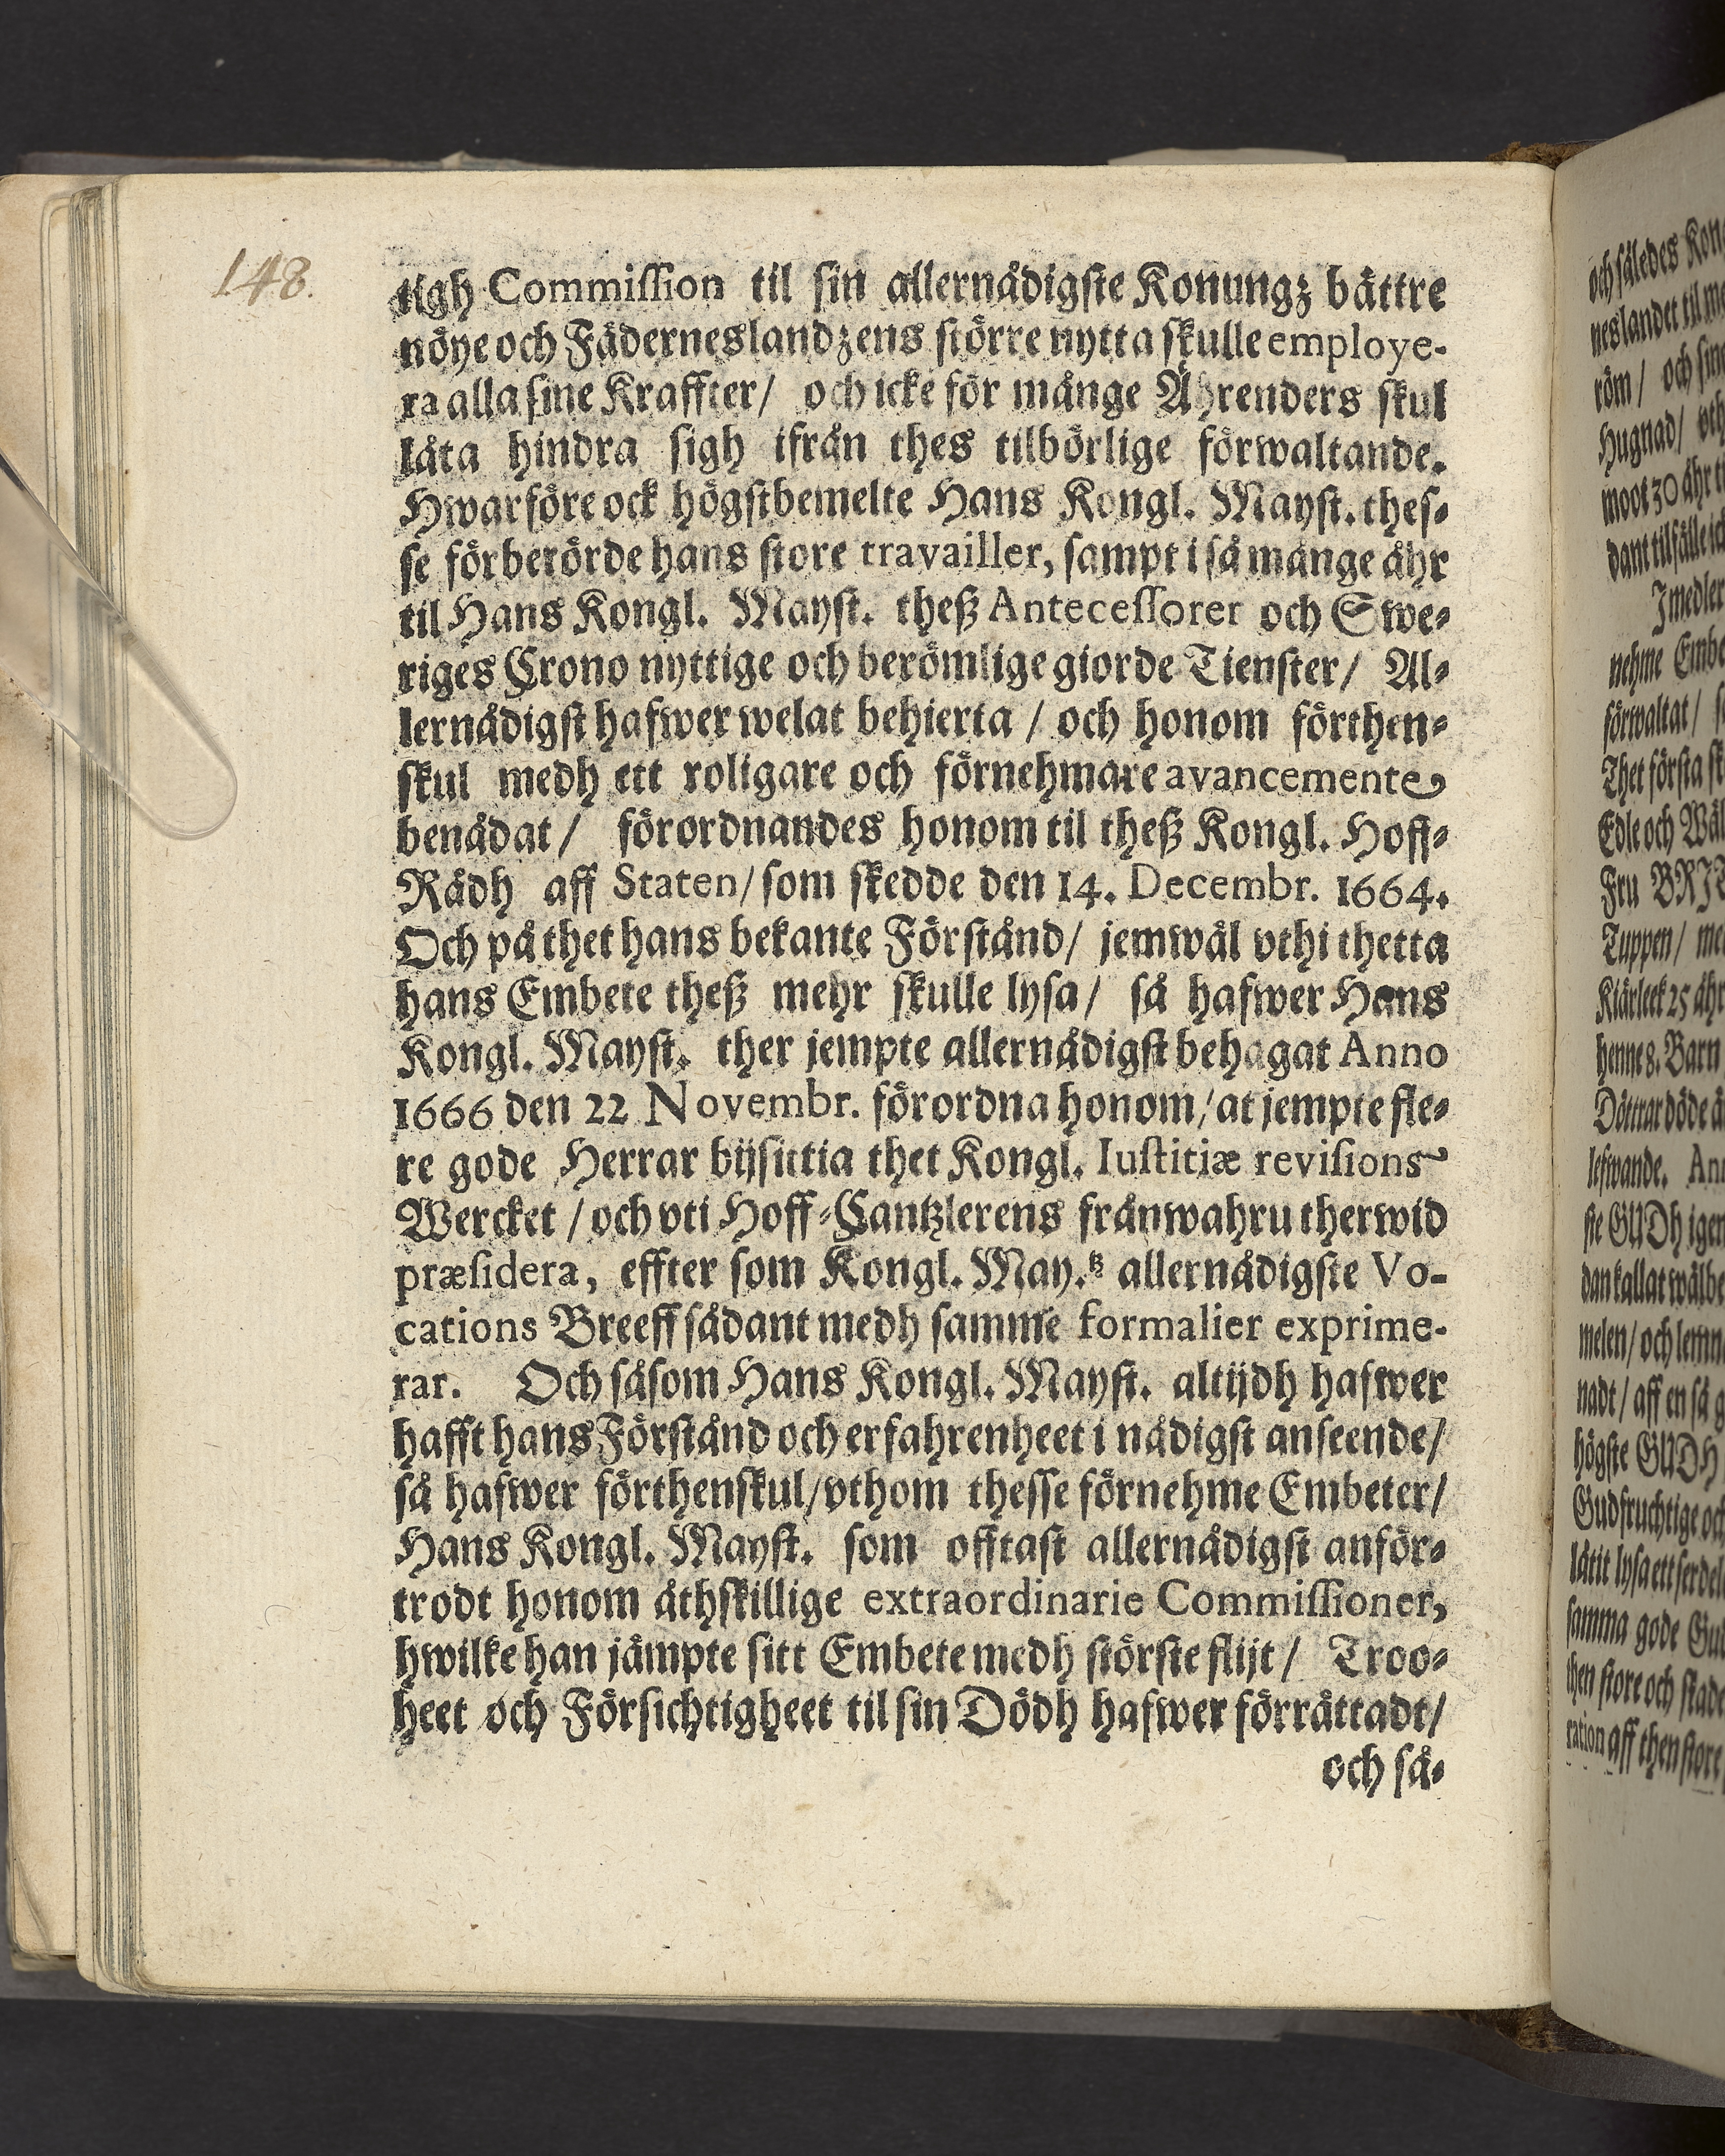 148.
tigh Commission til sin allernådigste Konungz bättre
nöye och Fäderneslandzens större nytta skulle employe-
ra alla sine Kraffter/ och icke för månge Ährenders skul
låta hindra sigh ifrån thes tilbörlige förwaltande.
Hwarföre ock högstbemelte Hans Kongl. Mayst. thes-
se förberörde hans store travailler, sampt i så månge åhr
til Hans Kongl. Mayst. theß Antecessorer och Swe-
riges Crono nyttige och berömlige giorde Tienster/ Al-
lernådigst hafwer welat behierta / och honom förthen-
skul medh ett roligare och förnehmare avancemente
benådat/ förordnandes honom til theß Kongl. Hoff-
Rådh aff Staten/ som skedde den 14. Decembr. 1664.
Och på thet hans bekante Förstånd/ jemwäl vthi thetta
hans Embete theß mehr skulle lysa/ så hafwer Hans
Kongl. Mayst. ther jempte allernådigst behagat Anno
1666 den 22 Novembr. förordna honom/ at jempte fle-
re gode Herrar bijsittia thet Kongl. Iustitiæ revisions
Wercket / och vti Hoff-Cantzlerens frånwahru therwid
præsidera, effter som Kongl. May.tz allernådigste Vo-
cations Breeff sådant medh samme formalier exprime-
rar. Och såsom Hans Kongl. Mayst. altijdh hafwer
hafft hans Förstånd och erfahrenheet i nådigst anseende/
så hafwer förthenskul/ vthom thesse förnehme Embeter/
Hans Kongl. Mayst. som offtast allernådigst anför-
trodt honom åthskillige extraordinarie Commissioner,
hwilke han jämpte sitt Embete medh störste flijt/ Troo-
heet och Försichtigheet til sin Dödh hafwer förrättadt/
och så-
och således
neslandet til
röm/ och
Hugnad/
moot 30 åhr
dant tilfälle
Imedler
nehme
förwaltat/
Thet första
Edle och
Fru
Tuppen/
Kiärleek 25 åhr
henne 8. Barn
Döttrar döde
lefwande.
ste GUDh igen
dan kallat
melen/ och
nadt/ aff en så
högste GUDH
Gudfruchtige
låtit lysa ett
samma gode
then store och
ration aff then store